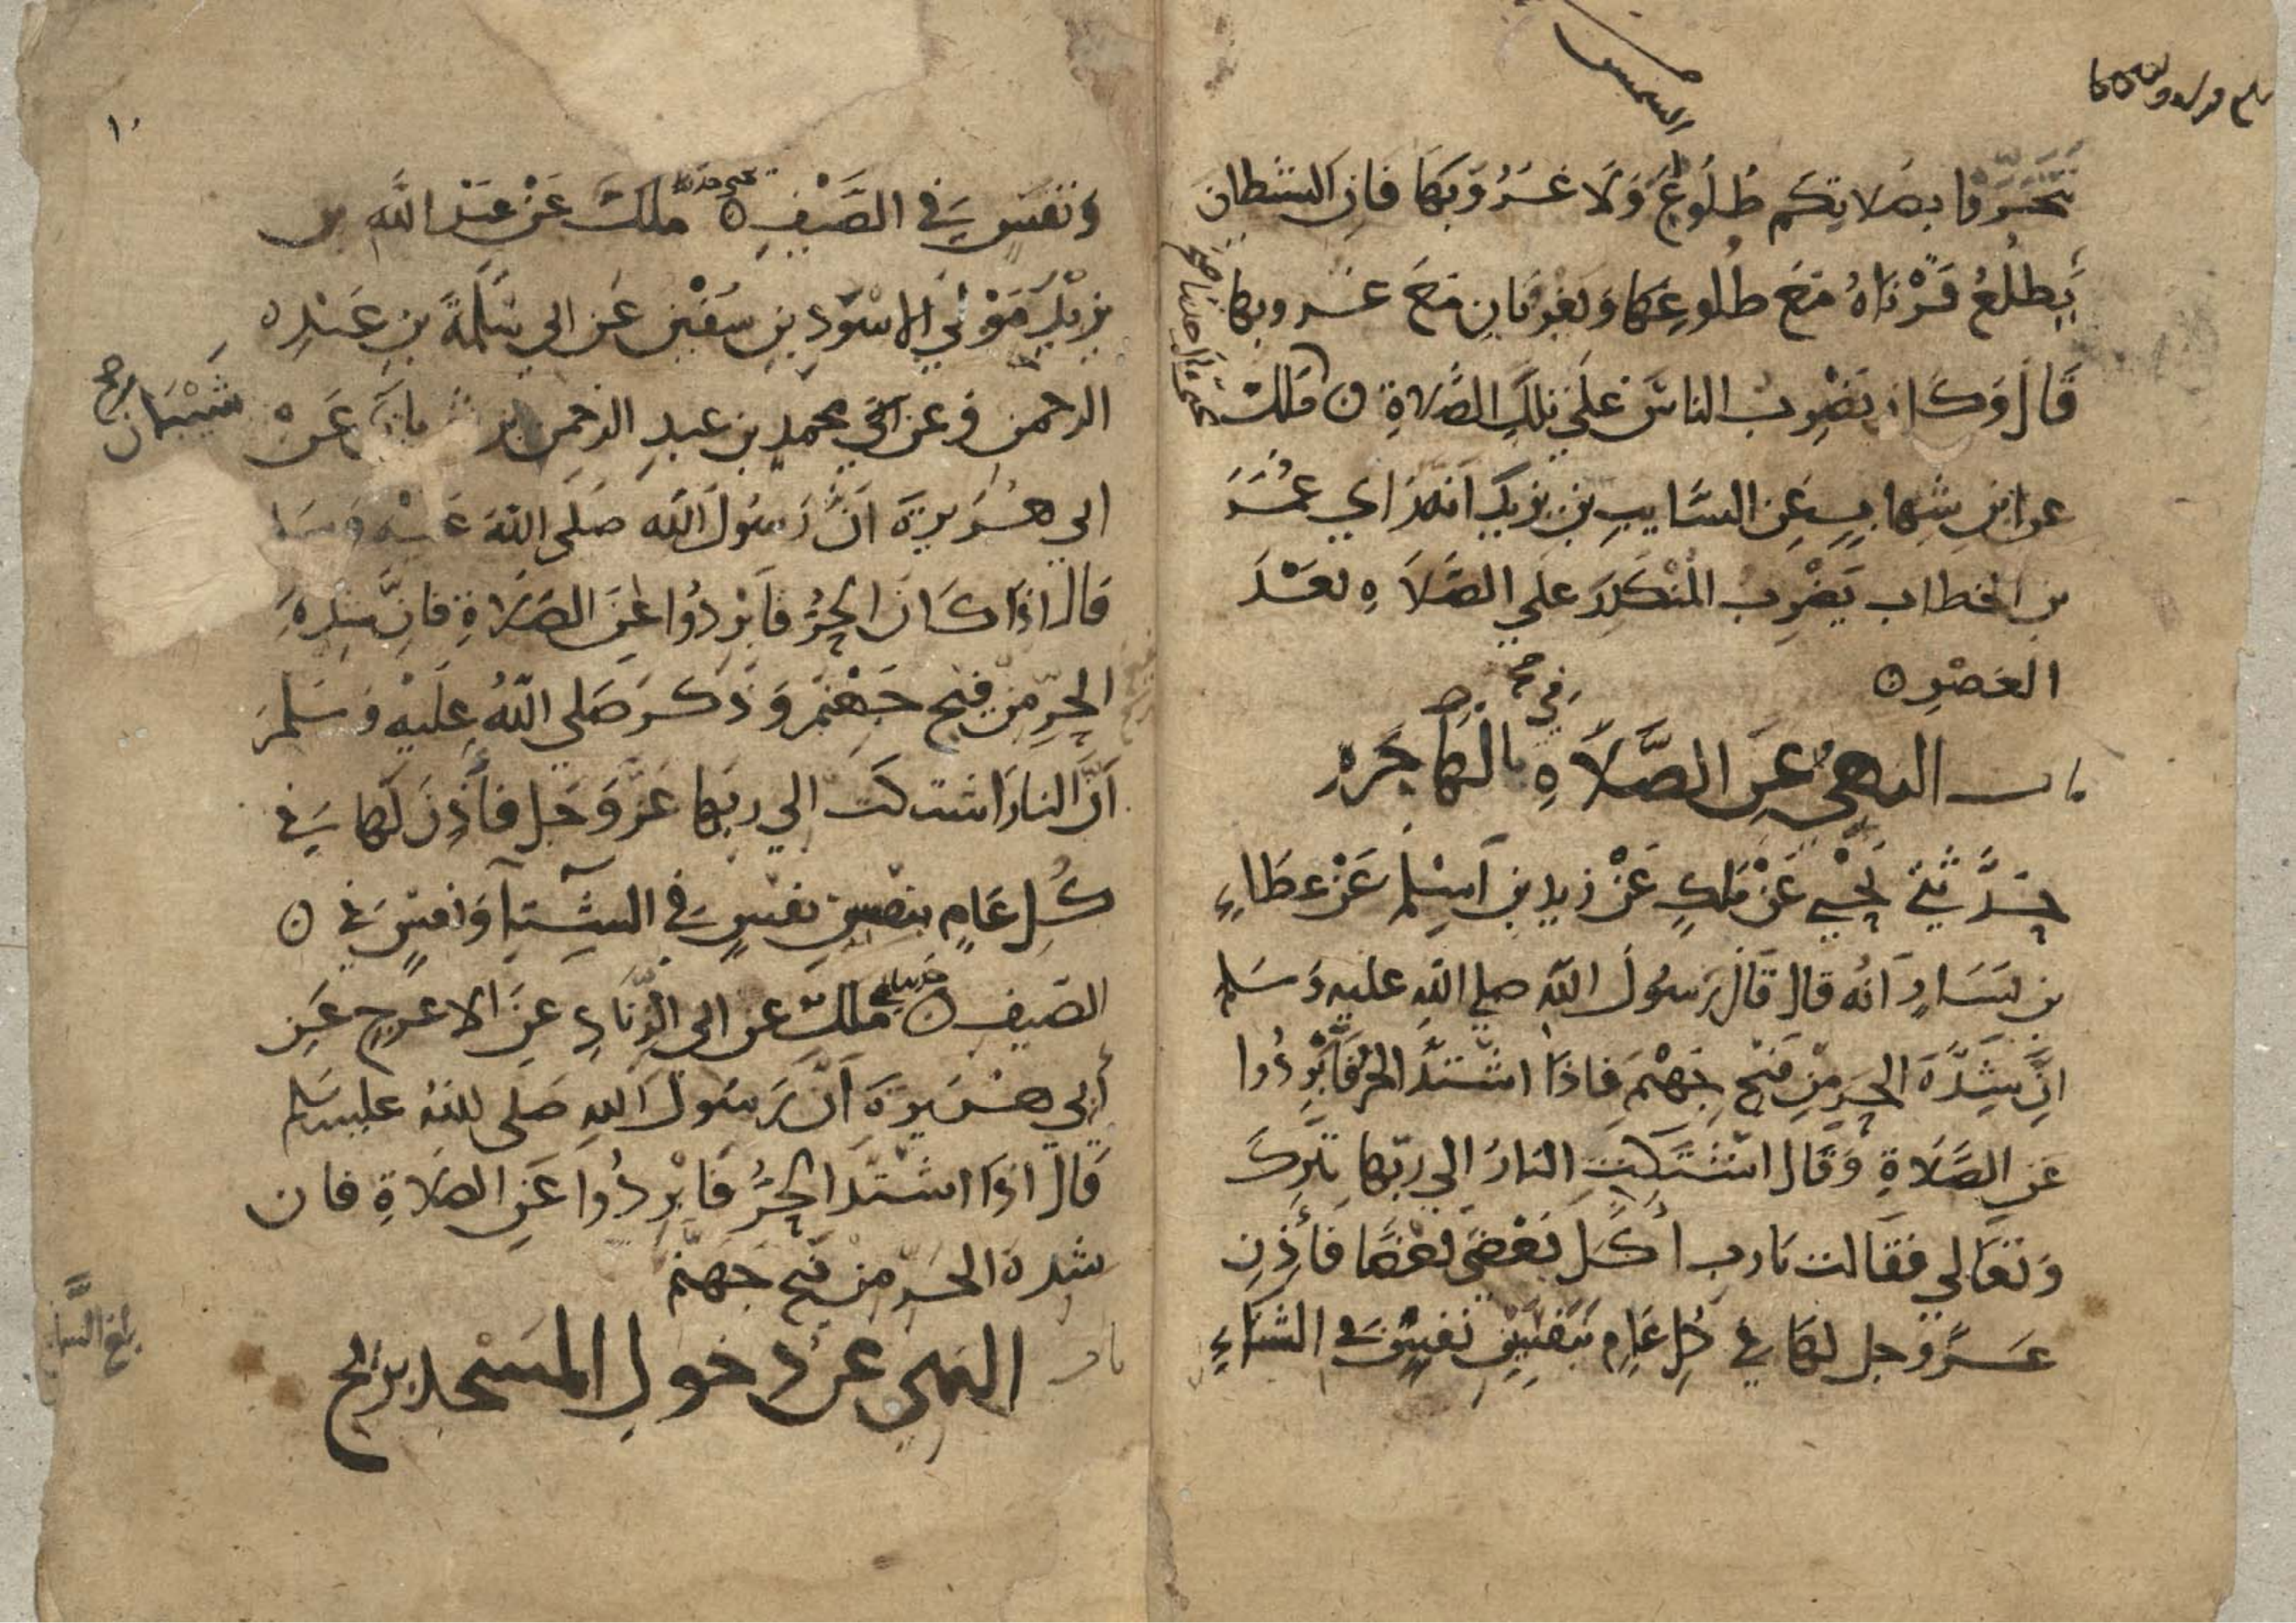 الشمس
تتحروا بصلاتكم طُلُوعَ وَلَا غُرُوبَهَا فَإِنَّ الشيطان
يَطلُعُ قَرْنَاهُ مَعَ طُلُوعِهَا وَيَغْرُبَانِ مَعَ غروبها
قَالَ وَكَانَ يَضْرِبُ الناسَ عَلَى تِلْكَ الصَّلاةِ ه مَلِك
عن ابنِ شِهابٍ عَنِ السَّايِبِ بن يزيدَ انّه رَأى عُمَرَ
بن الخطاب يَضْرِبُ المُنْكَدِرَ عَلَى الصَّلَاةِ بَعْدَ
العَصْرِ ه
باب النهيُ عَنِ الصَّلَاةِ بالهَاجَرة
في
حَدَّثَنِي يَحْيَى عَنْ مَلِكٍ عَنْ زيدِ بنِ أَسْلَمَ عَنْ عَطَاءِ
بنِ يَسَارٍ أَنَّهُ قَالَ قَالَ رَسُولُ اللَّهِ صلى اللهُ عليه وَسَلم
انَّ شِدَّةَ الحَرِ مِنْ فَيْحِ جَهَنَّمَ فَاذَا اشْتَدَّ الحَرُّ فَأَبْرِدُوا
عَنِ الصَّلَاةِ وَقَالَ اشْتَكَتِ النَارُ الى ربّها تَبَرَكَ
وَتَعَالى فَقَالت يَارب أَكَلَ بَعْضي بَعْضًا فَأَذِنَ
عَزَّ وَجل لَهَا في كُلِ عَامٍ بنَفَسَيْنِ نَفَسٍ فِي الشتاءِ
١٠
وَنَفَسٍ فِي الصَّيْفِ ه مَلِكٌ عَنْ عَبْدِ اللَّهِ بن
يزيدَ مَوْلَى الاسْوَدِ بنِ سُفْيَن عَن ابي سَلَمَةَ بنِ عَبْدِ
الرحمن وعن محمدِ بن عبدِ الرحمن بن ثوبان عَنْ
ابي هُرَيْرَةَ أَنَّ رَسُولَ اللَّهِ صَلَى اللهُ عَلَيْهِ وَسَلم
قَالَ اذَا كَانَ الحَرُّ فَأَبْرِدُوا عَنِ الصَلَاةِ فَإِنَّ شِدةَ
الحَرِّ مِنْ فَيْحِ جَهَنَّمَ وَذَكَرَ صَلى اللَّهُ عَلَيْهِ وَسَلَّمَ
أَنَّ النارَ اشتكَت الى رَبِّها عَزَّ وَجَل فَأَذِنَ لَهَا فِي
كُلِ عَامٍ بنَفَسَيْنِ نَفَسٍ فِي الشِّتَاءِ وَنَفَسٍ فِي ه
الصَيف ه مَلِكٌ عن ابى الزِّنَادِ عَنِ الاعرجِ عَن
أَبِي هُرَيْرَةَ أَنَّ رَسُولَ اللَّهِ صَلَى اللهُ عليه وسلم
قَالَ اذَا اشْتَدَ الحَرُّ فَأَبْرِدُوا عَنِ الصَلَاةِ فَان
شدةَ الحَرِّ من فَيْحِ جَهَنَّم
باب النَهْيُ عَنْ دُخولِ المَسْجد بريح